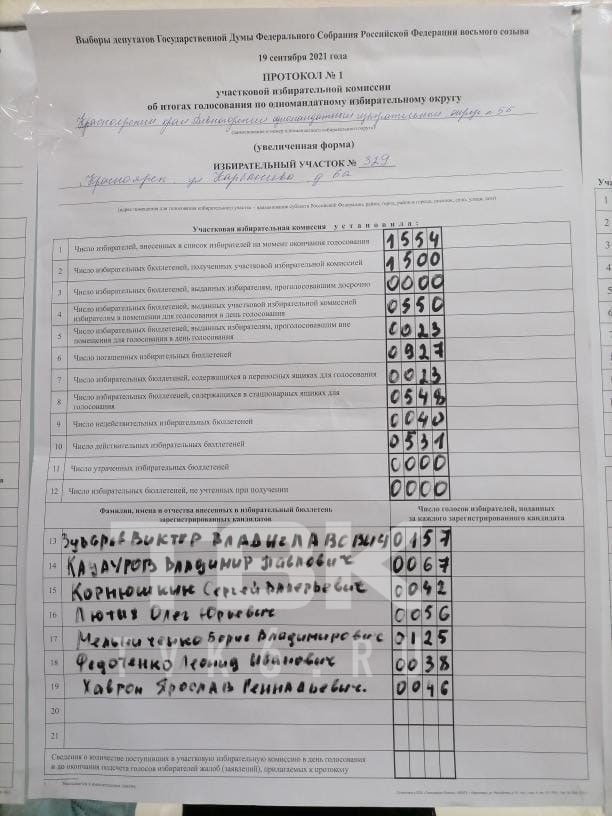 Выборы депутатов Государственной Думы Федерального Собрания Российской Федерации восьмого созыва
19 сентября 2021 года
ПРОТОКОЛ № 1
участковой избирательной комиссии
об итогах голосования по одномандатному избирательному округу
Красноярский край одномандатный избирательный округ № 55
(наименование и номер одномандатного избирательного округа)
(увеличенная форма)
ИЗБИРАТЕЛЬНЫЙ УЧАСТОК № 329
Красноярск ул д 6а
Участковая избирательная комиссия установила:
1 Число избирателей, внесенных в список избирателей на момент окончания голосования 1554
2 Число избирательных бюллетеней, полученных участковой избирательной комиссией 1500
3 Число избирательных бюллетеней, выданных избирателям, проголосовавшим досрочно 0000
4 Число избирательных бюллетеней, выданных участковой избирательной комиссией
избирателям в помещении для голосования в день голосования 0550
5 Число избирательных бюллетеней, выданных избирателям, проголосовавшим вне
помещения для голосования в день голосования 0023
6 Число погашенных избирательных бюллетеней 0927
7 Число избирательных бюллетеней, содержащихся в переносных ящиках для голосования 0023
8 Число избирательных бюллетеней, содержащихся в стационарных ящиках для
голосования 0548
9 Число недействительных избирательных бюллетеней 0040
10 Число действительных избирательных бюллетеней 0531
11 Число утраченных избирательных бюллетеней 0000
12 Число избирательных бюллетеней, не учтенных при получении 0000
Фамилии, имена и отчества внесенных в избирательный бюллетень
зарегистрированных кандидатов
Число голосов избирателей, поданных
за каждого зарегистрированного кандидата
13 Зубарев Виктер Владиславович 0157
14 Кацауров Владимир Павлович 0067
15 Корнюшкин Сергей Валерьевич 0042
16 Лютых Олег Юрьевич 0056
17 Мельниченко Борис Владимирович 0125
18 Федотенко Леонид Иванович 0038
19 Хаврон Ярослав Геннадьевич. 0046
20
21
Сведения о количестве поступивших в участковую избирательную комиссию в день голосования
и до окончания подсчета голосов избирателей жалоб (заявлений), прилагаемых к протоколу
ТВК
TVK6.RU